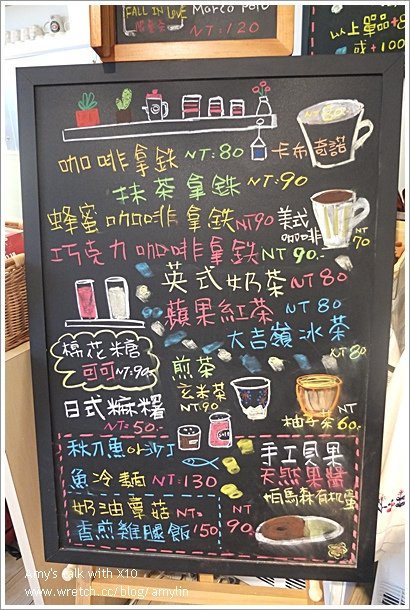 FALL IN LOVE
Marco Polo
NT:120
以上單品+80
或+100
咖啡拿鐵 NT:80 卡布奇諾
抹茶拿鐵 NT:90
蜂蜜咖啡拿鐵 NT90 美式咖啡 NT70
巧克力咖啡拿鐵 NT90.
英式奶茶 NT80
蘋果紅茶 NT80
大吉嶺冰茶 NT80
棉花糖
可可 NT:90.
煎茶
玄米茶
NT90
柚子茶 NT60.
日式麻糬
NT:50.
秋刀魚
魚冷麵 NT:130
奶油蕈菇
香煎雞腿飯 NT:150
手工貝果
天然果醬
NT90
Amy's talk with X10
www.wretch.cc/blog/amylin